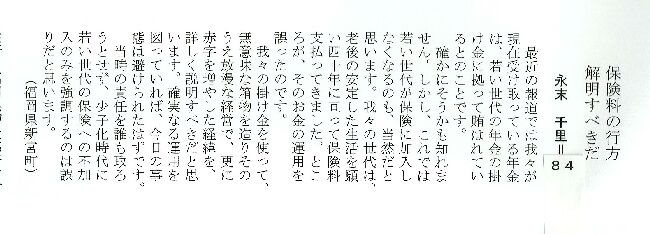 保険料の行方
解明すべきだ
永末 千里=84
最近の報道では我々が
現在受け取っている年金
は、若い世代の年金の掛
け金に拠って賄はれてい
るとのことです。
確かにそうかも知れま
せん。しかし、これでは
若い世代が保険に加入し
なくなるのも、当然だと
思います。我々の世代は、
老後の安定した生活を願
い四十年に亘って保険料
支払ってきました。とこ
ろが、そのお金の運用を
誤ったのです。
我々の掛け金を使って、
無意味な箱物を造りその
うえ放漫な経営で、更に
赤字を増やした経緯を、
詳しく説明すべきだと思
います。確実なる運用を
図っていれば、今日の事
態は避けられたはずです。
当時の責任を誰も取ろ
うとせず、少子化時代に
若い世代の保険への不加
入のみを強調するのは誤
りだと思います。
(福岡県新宮町)